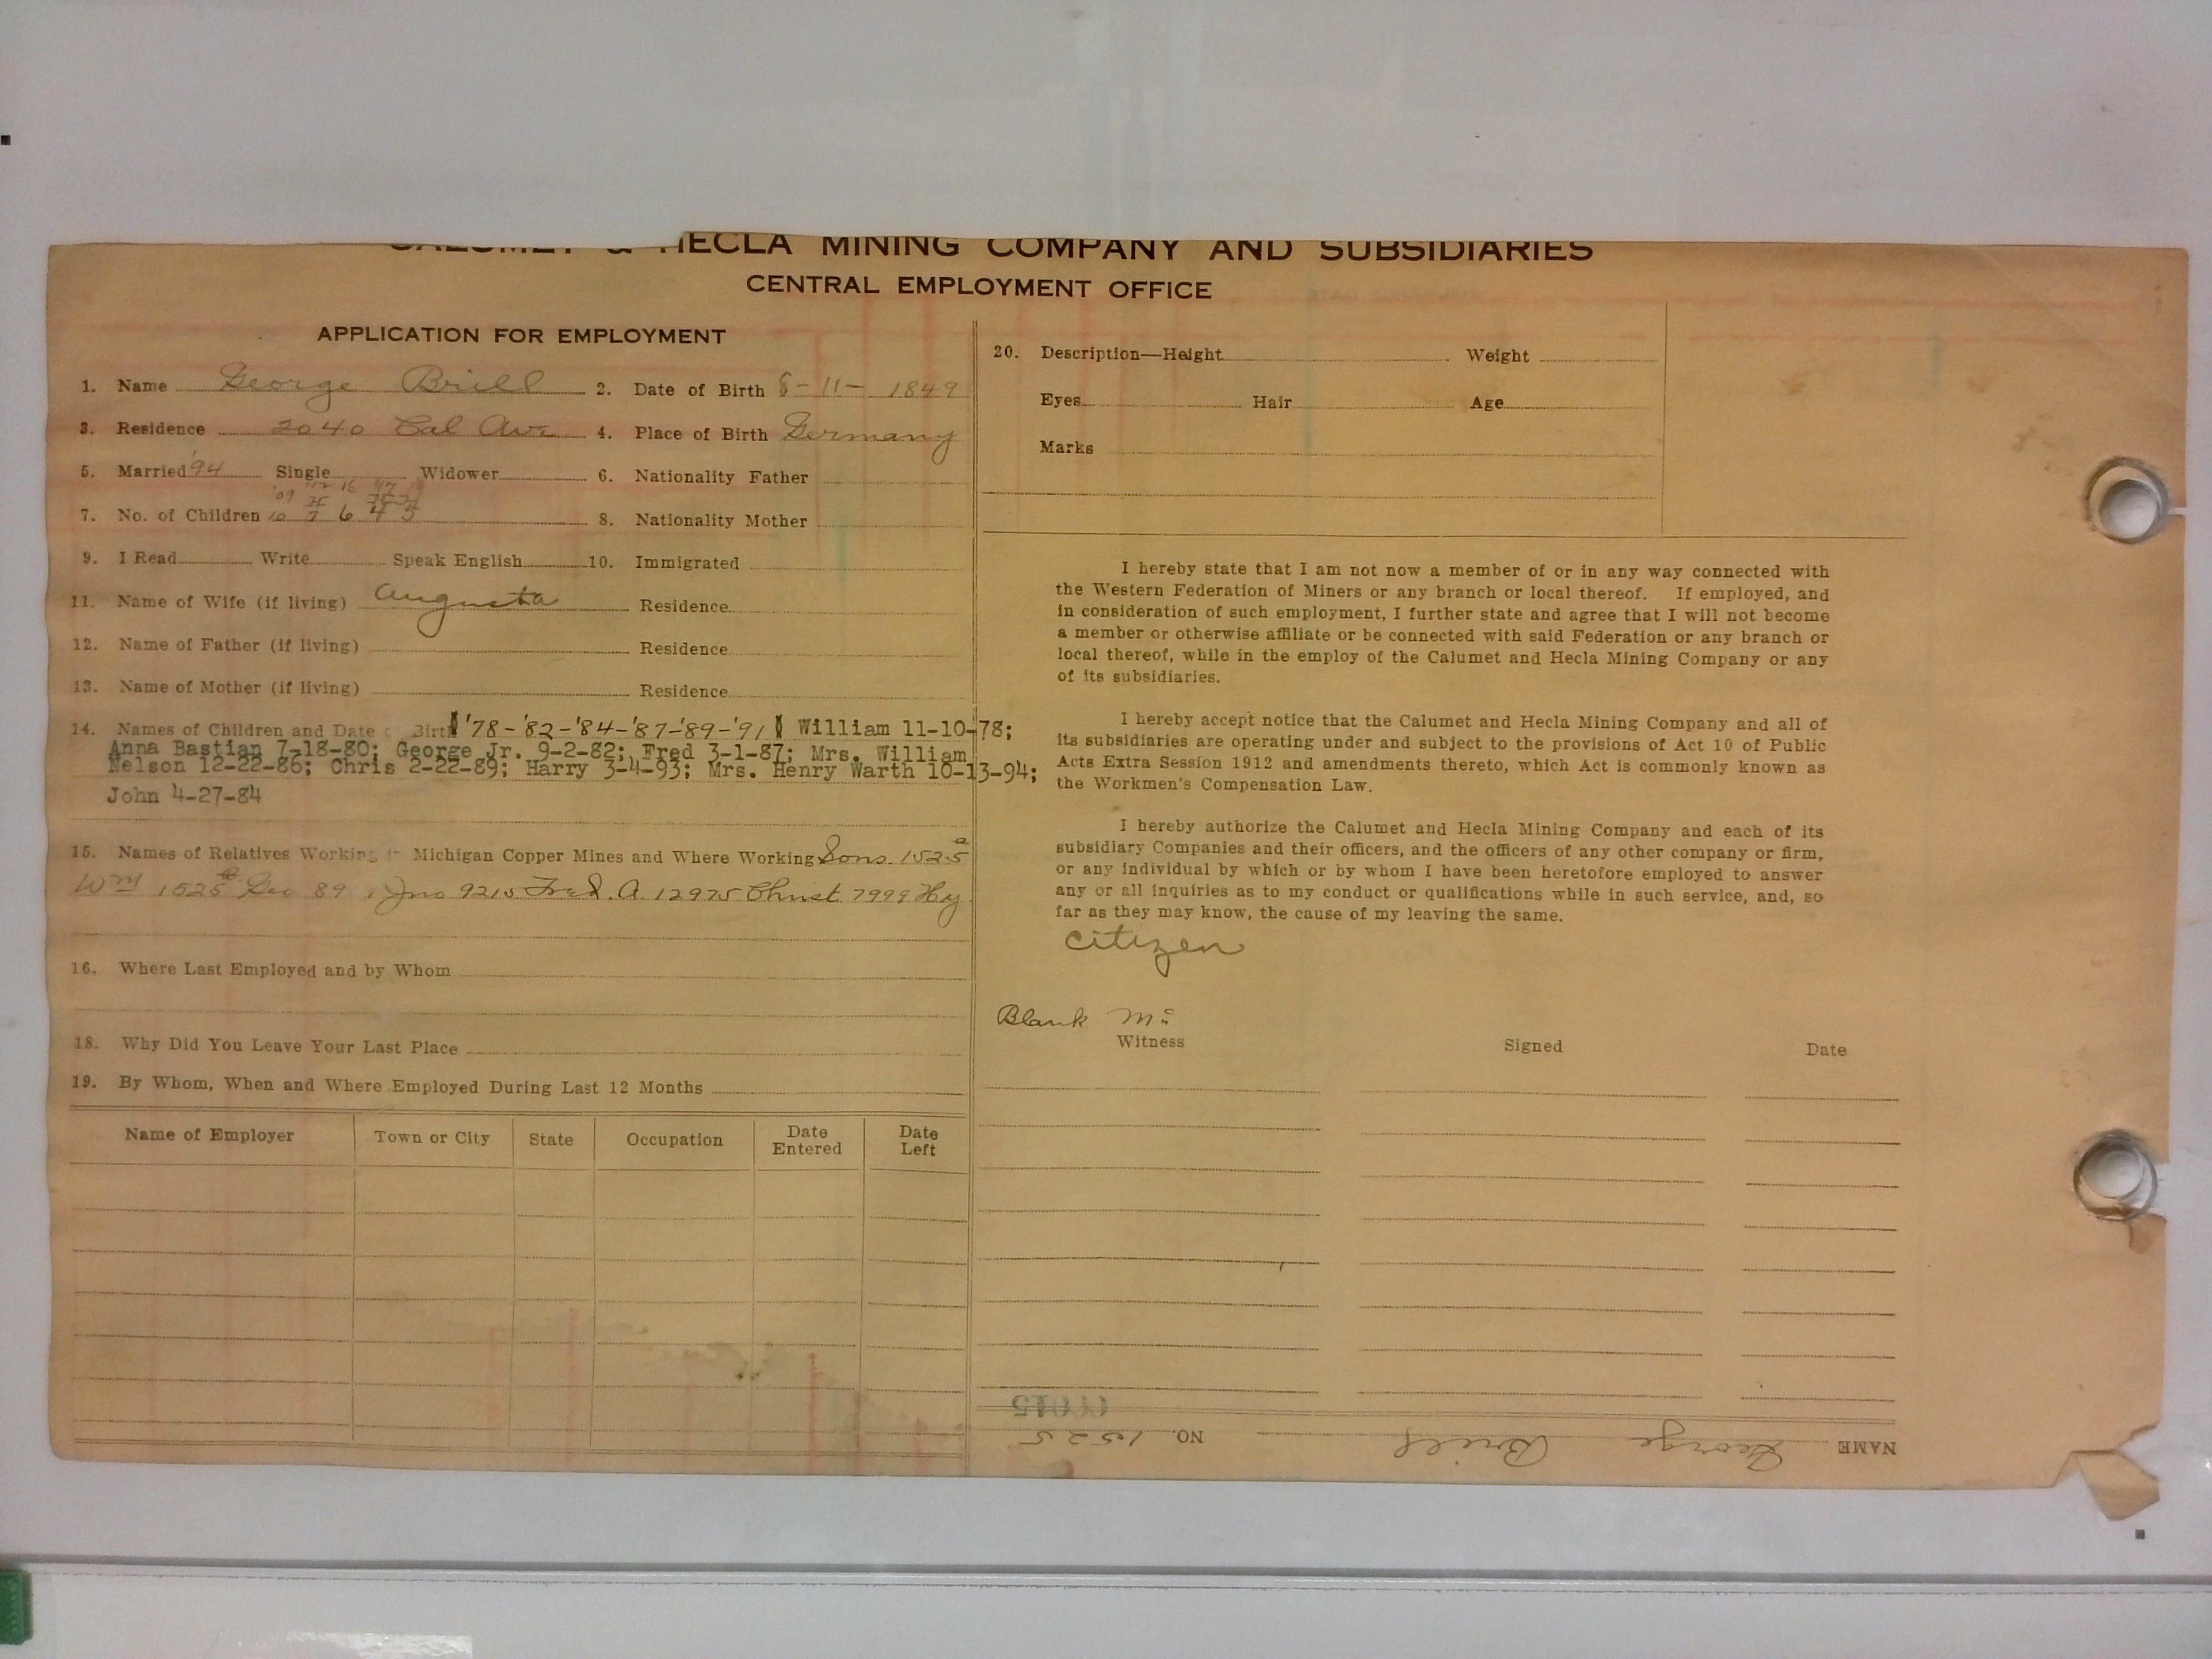 CALUMET & HECLA MINING COMPANY AND SUBSIDIARIES
CENTRAL EMPLOYMENT OFFICE
APPLICATION FOR EMPLOYMENT
1. Name George Brill 2. Date of Birth 8-11- 1849
3. Residence 2040 Cal Ave 4. Place of Birth Germany
5. Married '94 Single Widower 6. Nationality Father
7. No. of Children 10 7 6 4 3 8. Nationality Mother
9. I Read Write Speak English 10. Immigrated
11. Name of Wife (if living) Augusta Residence
12. Name of Father (if living) Residence
13. Name of Mother (if living) Residence
14. Names of Children and Date Birth '78-'82-'84-'87-'89-'91 William 11-10-78;
Anna Bastian 7-18-80; George Jr. 9-2-82; Fred 3-1-87; Mrs. William
Nelson 12-22-86; Chris 2-22-89; Harry 3-4-93; Mrs. Henry Warth 10-13-94;
John 4-27-84
15. Names of Relatives Working in Michigan Copper Mines and Where Working Sons. 1525 a
Wm 1525 b Geo 89, Jno 9215 Fred. A. 12975 Christ 7999 Hy
16. Where Last Employed and by Whom
18. Why Did You Leave Your Last Place
19. By Whom, When and Where Employed During Last 12 Months
Name of Employer Town or City State Occupation Date Entered Date Left
20. Description—Height Weight
Eyes Hair Age
Marks
I hereby state that I am not now a member of or in any way connected with
the Western Federation of Miners or any branch or local thereof. If employed, and
in consideration of such employment, I further state and agree that I will not become
a member or otherwise affiliate or be connected with said Federation or any branch or
local thereof, while in the employ of the Calumet and Hecla Mining Company or any
of its subsidiaries.
I hereby accept notice that the Calumet and Hecla Mining Company and all of
its subsidiaries are operating under and subject to the provisions of Act 10 of Public
Acts Extra Session 1912 and amendments thereto, which Act is commonly known as
the Workmen's Compensation Law.
I hereby authorize the Calumet and Hecla Mining Company and each of its
subsidiary Companies and their officers, and the officers of any other company or firm,
or any individual by which or by whom I have been heretofore employed to answer
any or all inquiries as to my conduct or qualifications while in such service, and, so
far as they may know, the cause of my leaving the same.
Citizen
Blank
Witness Signed Date
NAME George Brill NO. 1525
00015